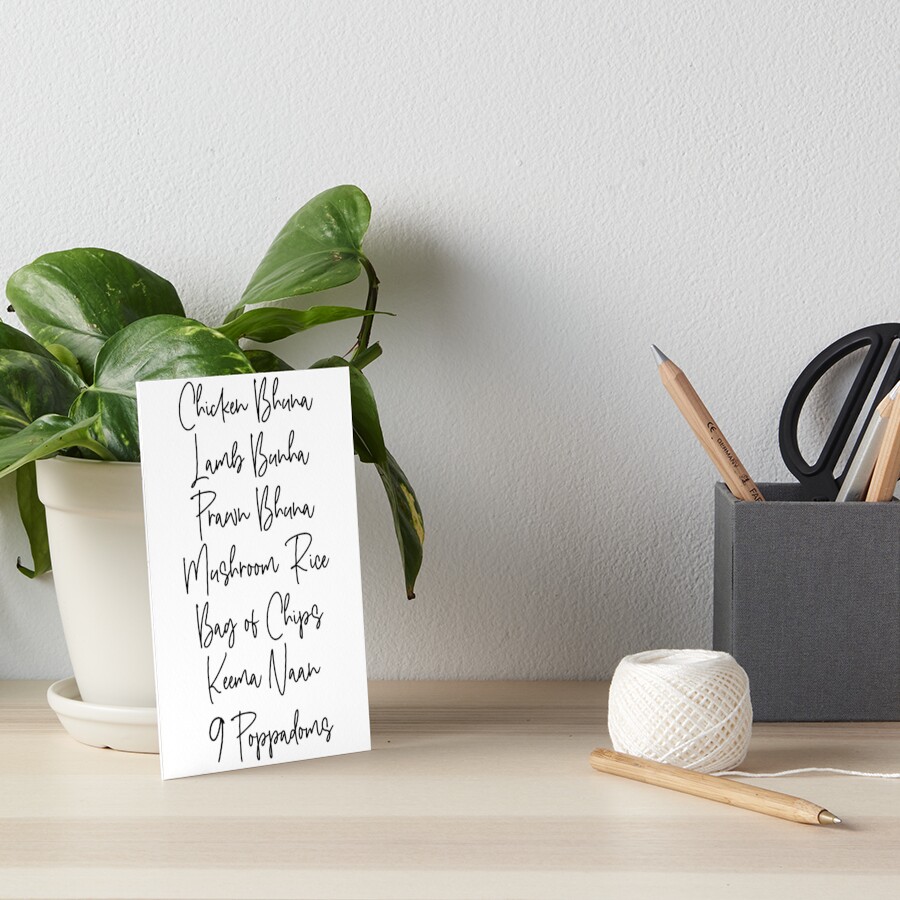 Chicken Bhuna
Lamb Bunha
Prawn Bhuna
Mushroom Rice
Bag of Chips
Keema Naan
9 Poppadoms
CE GERMANY